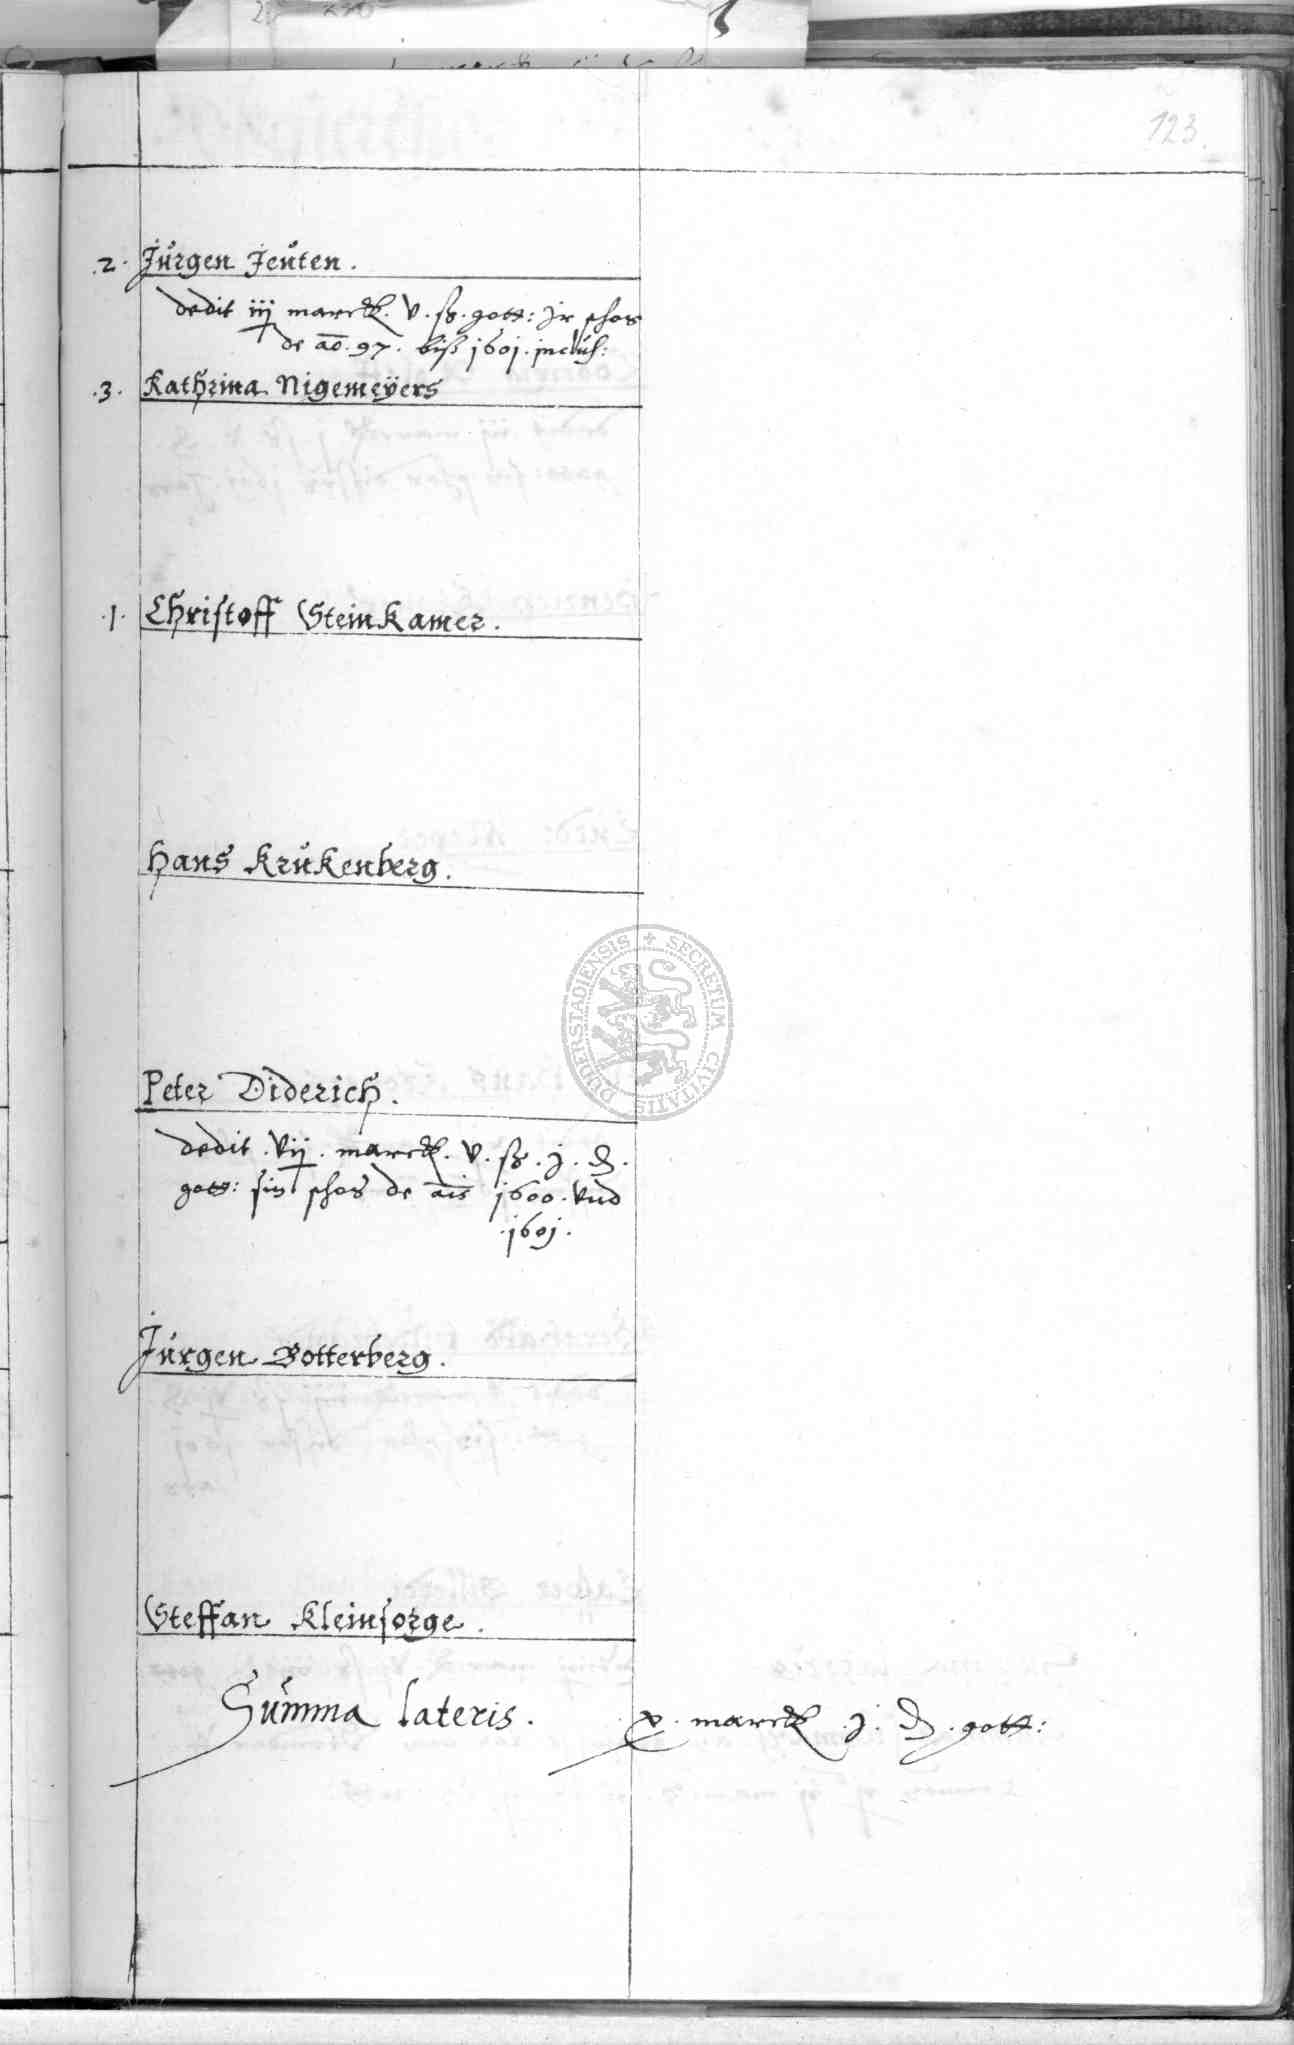 123.
.2. Jürgen Jeuten.
dedit iij marck. v. ß. gott: Jr schos
de ao. 97. biß 1601. inclus:
.3. Kathrina Nigemeÿers
.1. Christoff Steinkamer.
Hans Krukenberg.
Peter Diderich.
dedit .vij. marck. v. ß. j. d.
gott: sin schos de ais 1600. vnd
.1601.
Jürgen Botterberg.
Steffan Kleinsorge.
Summa lateris. x. marck .j. d. gott:
SECRETUM CIVITATIS DUDERSTADIENSIS